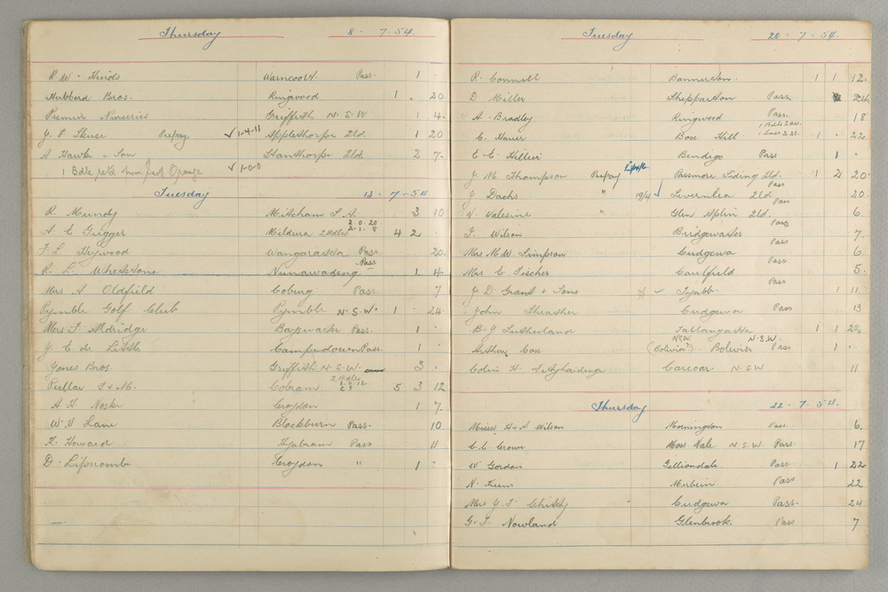 Thursday 8 - 7 - 54.
R. W. Hinds Pass. 1 ·
Hubbard Bros. Ringwood 1 . 20
Premier Nurseries Griffith N.S.W 1 4.
J. P. Prepay ✓ 1-4-11 Applethorpe Qld. 1 20
A Hawke & Son ✓ 1-0-0 Stanthorpe Qld. 2 7.
Orange
Tuesday 13 - 7 - 54
R. Mundy Mitcham S.A. 3 10
2.0.20
A. E. Grigger Mildura 2.1.8 4 2.
F. L. Heywood Wangaratta Pass 20.
Pass
R. L. Wheelstone Nunawading 1 4.
Mrs A Oldfield Coburg Pass. 7
Pymble Golf Club Pymble N.S.W. 1 · 24.
Mrs F. Aldridge Bayswater Pass. 1 ·
J. C. de Camperdown Pass. 1 ·
Jones Bros. Griffith N.S.W. 3 ·
Pullar S & M. Cobram 5 3 12
A. H. Croydon 1 7.
W. H Lane Blackburn Pass. 10
K. Howard Kyabram Pass 11
D. Lipscombe Croydon " 1 ·
Tuesday 20 - 7 - 54.
R. Connell Bannerton. 1 1 12.
D. Miller Shepparton Pass. 24.
A. Bradley Ringwood Pass. 18
C. Box Hill 1 · 22.
C. E. Bendigo Pass 1 ·
J. M. Thompson Prepay Passmore Siding Qld. 1 2 20
J. Dachs " 19/4 Severnlea Qld Pass 20.
N. " Glen Aplin Qld. Pass 6.
F. Wilson Bridgewater Pass 7.
Mrs M. W. Simpson Cudgewa Pass 6
Mrs C. Fischer Caulfield Pass 5.
J. D. Grant & Sons ✓ 1 11
John Thrasher Cudgewa Pass 13
B. J. Sutherland Tallangatta 1 1 22.
N.S.W. N.S.W.
Arthur Cox (Bolivia) Bolivia Pass 1 ·
Colin H. Carcoar N.S.W 11
Thursday 22 - 7 - 54.
Misses H & A Wilson Mornington Pass. 6.
C. C. Crowe Moss Vale N.S.W. Pass. 17
W Gordon Pass 1 22
N. Merbein Pass 22
Mrs Y. F. Cudgewa Pass. 24
G. F. Nowland Glenbrook. Pass 7